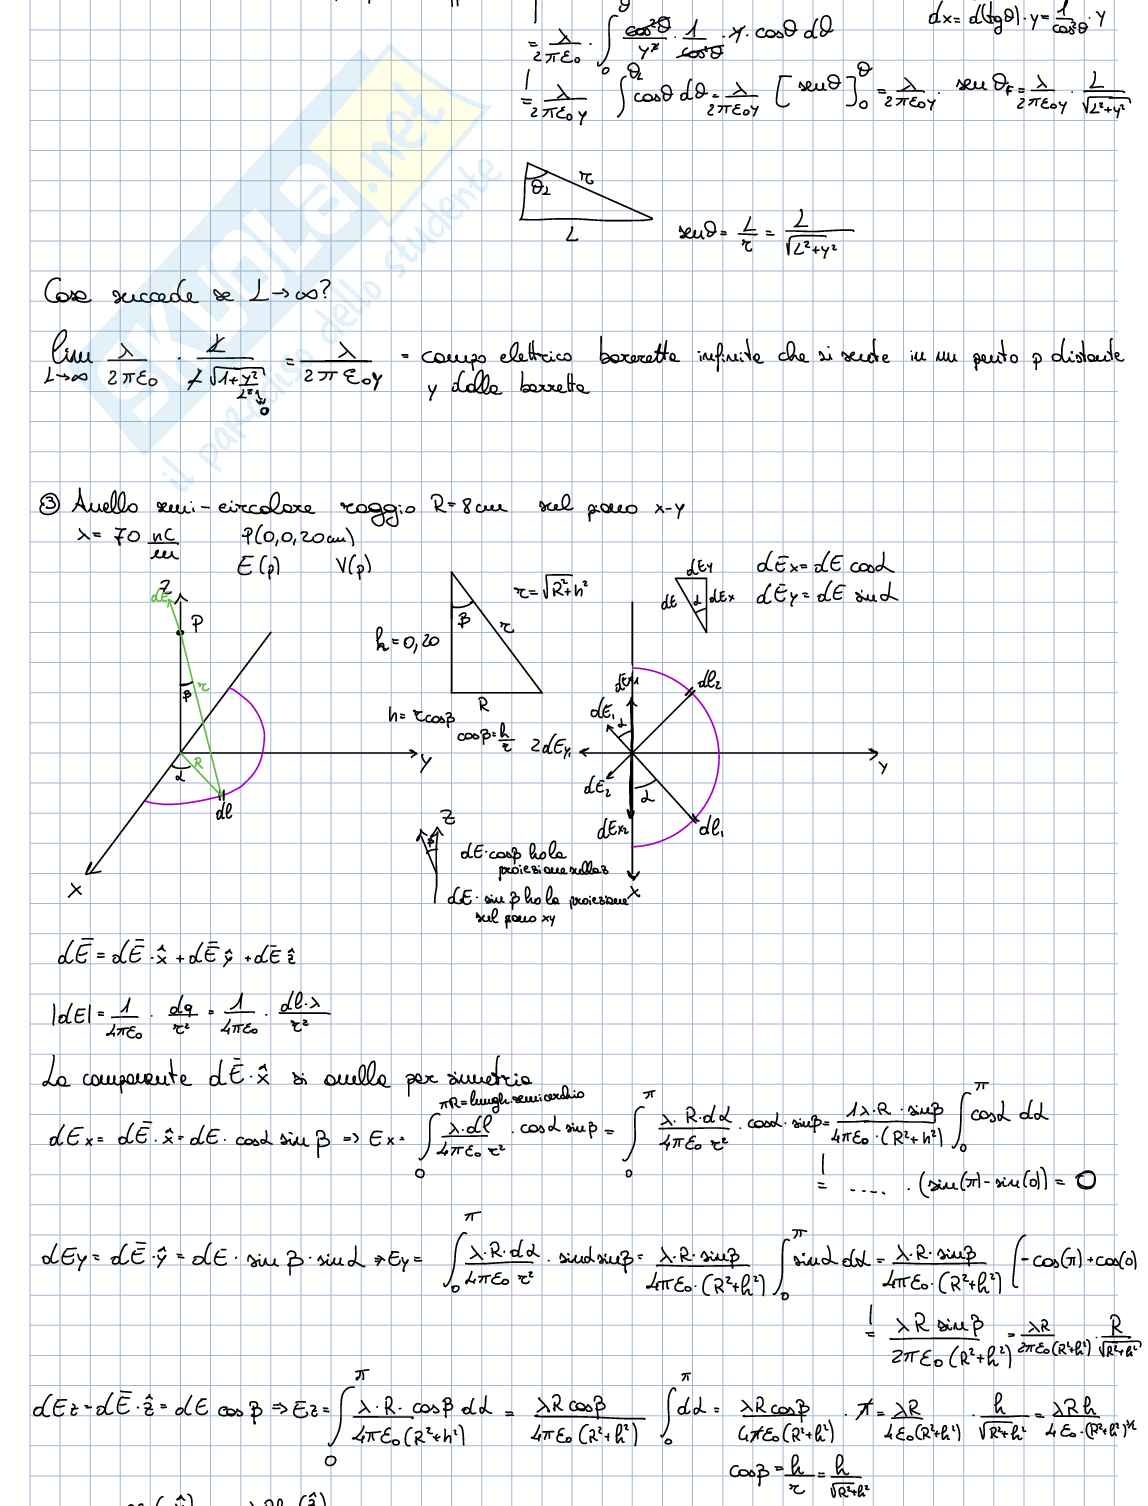 dx = d(tgθ)·y = 1/cos²θ · y
= λ/2πε₀ · ∫₀^θ cos²θ/y² · 1/cos²θ · y · cosθ dθ
= λ/2πε₀y ∫₀^θ₂ cosθ dθ = λ/2πε₀y [senθ]₀^θ = λ/2πε₀y · senθF = λ/2πε₀y · L/√L²+y²
θ₂ r
L
senθ = L/r = L/√L²+y²
Cosa succede se L→∞?
lim L→∞ λ/2πε₀ · L/L√1+y²/L² = λ/2πε₀y = campo elettrico barretta infinita che si sente in un punto p distante
→0
y dalla barretta
③ Anello semi-circolare raggio R=8cm sul piano x-y
λ = 70 nC/m P(0,0,20cm)
E(p) V(p)
Z
dE
P
β r
R
α
dl
Y
X
r=√R²+h²
β r
h=0,20
R
h = r cosβ
cosβ = h/r
dEy
dE α dEx
dEx = dE cosα
dEy = dE sinα
dEx₁
dE₁ α
2dEy₁
dE₂
dEx₂
α
dl₂
dl₁
y
x
Z
β
dE·cosβ ho la
proiezione sulla z
dE·sinβ ho la proiezione
sul piano xy
dĒ = dĒ·x̂ + dĒ ŷ + dĒ ẑ
|dE| = 1/4πε₀ · dq/r² = 1/4πε₀ · dl·λ/r²
La componente dĒ·x̂ si anulla per simmetria
πR = lungh. semicerchio
dEx = dĒ·x̂ = dE·cosα sinβ ⇒ Ex = ∫₀^π λ·dl/4πε₀ r² · cosα sinβ = ∫₀^π λ·R·dα/4πε₀ r² · cosα·sinβ = 1λ·R·sinβ/4πε₀·(R²+h²) ∫₀^π cosα dα
= ..... · (sin(π)-sin(0)) = 0
dEy = dĒ·ŷ = dE·sinβ·sinα ⇒ Ey = ∫₀^π λ·R·dα/4πε₀ r² · sinα sinβ = λ·R·sinβ/4πε₀·(R²+h²) ∫₀^π sinα dα = λ·R·sinβ/4πε₀·(R²+h²) (-cos(π)+cos(0)
= λR sinβ/2πε₀(R²+h²) = λR/2πε₀(R²+h²) · R/√R²+h²
dEz = dĒ·ẑ = dE cosβ ⇒ Ez = ∫₀^π λ·R·cosβ dα/4πε₀(R²+h²) = λR cosβ/4πε₀(R²+h²) ∫₀^π dα = λR cosβ/4πε₀(R²+h²) · π = λR/4ε₀(R²+h²) · h/√R²+h² = λRh/4ε₀·(R²+h²)^3/2
cosβ = h/r = h/√R²+h²
SKUOLA.net
il paradiso dello studente